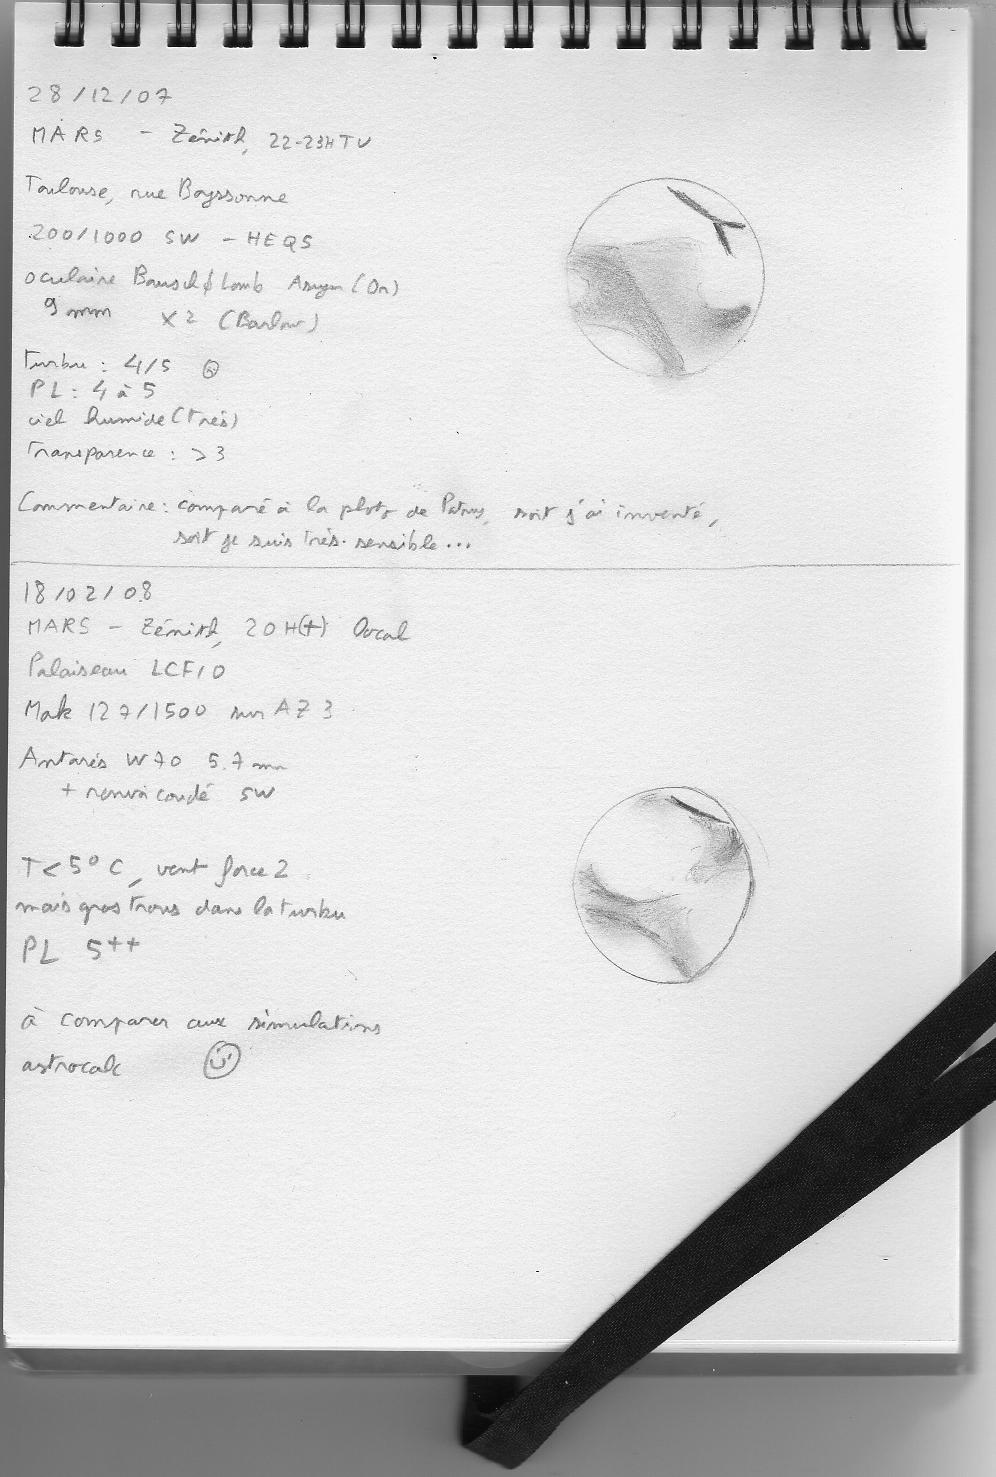 28/12/07
MARS - Zénith, 22-23H TU
Toulouse, rue Boyssonne
200/1000 SW - HEQ5
oculaire Bausch & Lomb (On)
9 mm x2 (Barlow)
turbu : 4/5
PL : 4 à 5
ciel humide (très)
Transparence : >3
Commentaire : comparé à la photo de soit j'ai inventé,
soit je suis très sensible...
18/02/08
MARS - Zénith, 20H(+) local
Palaiseau LCFIO
Mak 127/1500 sur AZ3
Antarès W70 5.7 mm
+ renvoi coudé SW
T<5°C, vent force 2
mais gros trous dans la turbu
PL 5++
à comparer aux simulations
astrocalc